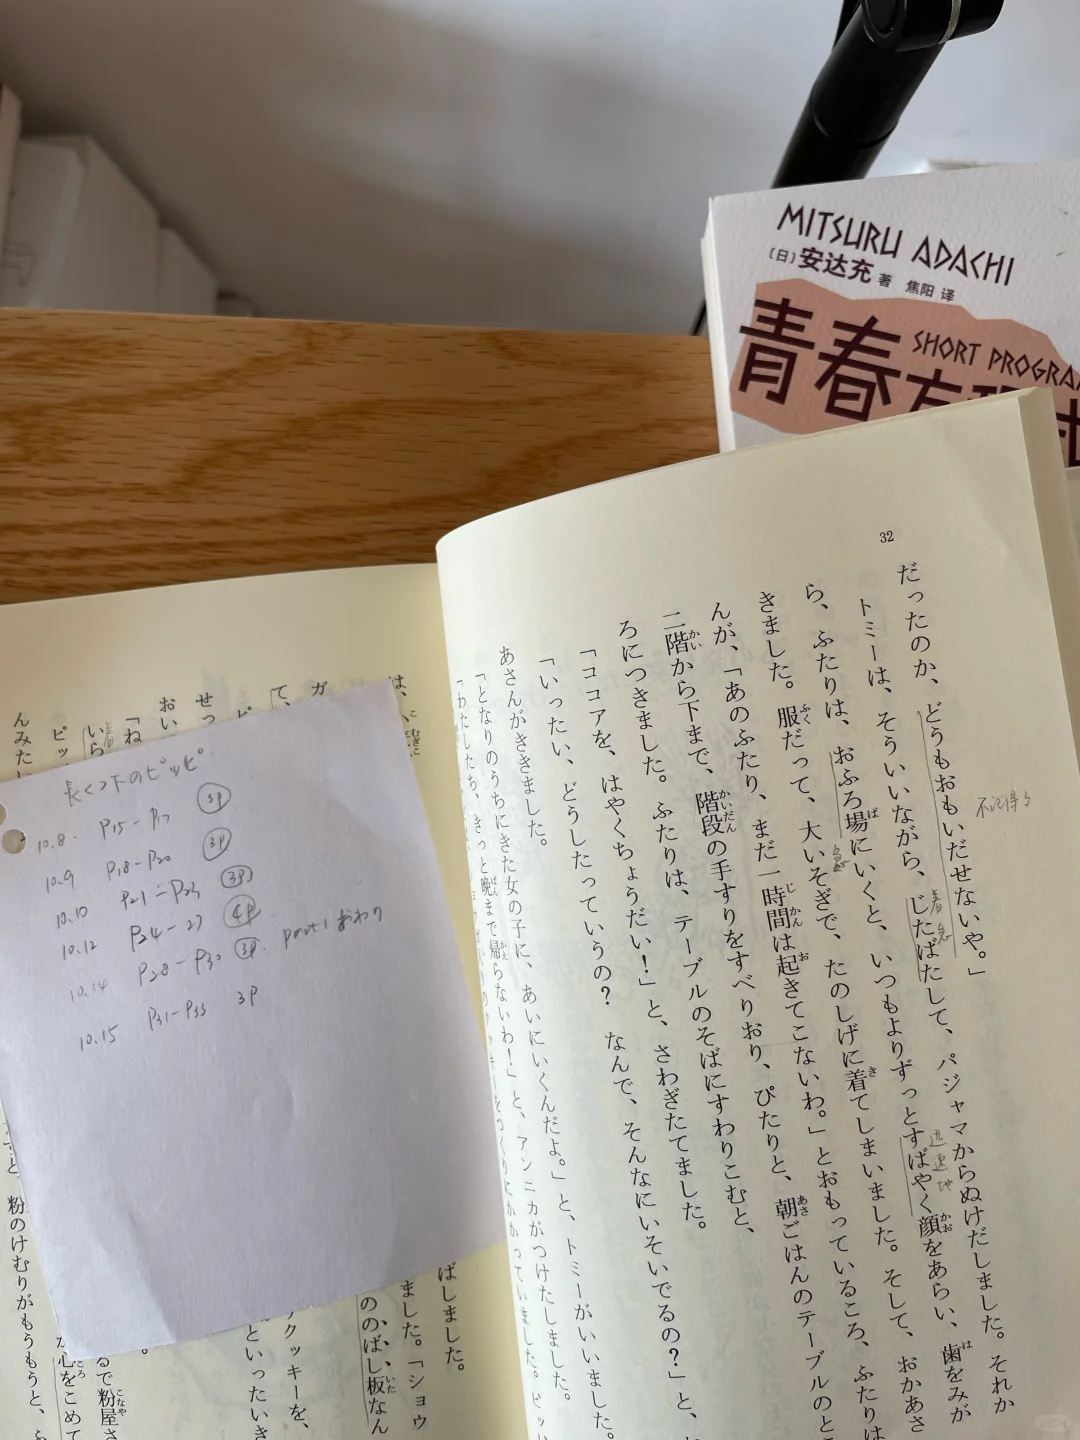 MITSURU ADACHI
〔日〕安达充 著 焦阳 译
青春
SHORT PROGRA
32
だったのか、どうもおもいだせないや。」
不记得了
トミーは、そういいながら、じたばたして、パジャマからぬけだしました。それか
着急
ら、ふたりは、おふろ場にいくと、いつもよりずっとすばやく顔をあらい、歯をみが
迅速地
きました。服だって、大いそぎで、たのしげに着てしまいました。そして、おかあさ
んが、「あのふたり、まだ一時間は起きてこないわ。」とおもっているころ、ふたりは
二階から下まで、階段の手すりをすべりおり、ぴたりと、朝ごはんのテーブルのとこ
ろにつきました。ふたりは、テーブルのそばにすわりこむと、
「ココアを、はやくちょうだい!」と、さわぎたてました。
「いったい、どうしたっていうの? なんで、そんなにいそいでるの?」と、
あさんがききました。
「となりのうちにきた女の子に、あいにいくんだよ。」と、トミーがいいました。
「わたしたち、きっと晩まで帰らないわ!」と、アンニカがつけたしました。
長くつ下のピッピ
10.8 - P15 - P17 3P
10.9 P18 - P20 3P
10.10 P21 - P23 3P
10.12 P24 - 27 4P
10.14 P28 - P30 3P. part 1 おわり
10.15 P31 - P33 3P
ばしました。
ました。「ショウ
ののばし板なん
クッキーを、
といったいき
心をこめて
るで粉屋さ
粉のけむりがもうもうと、